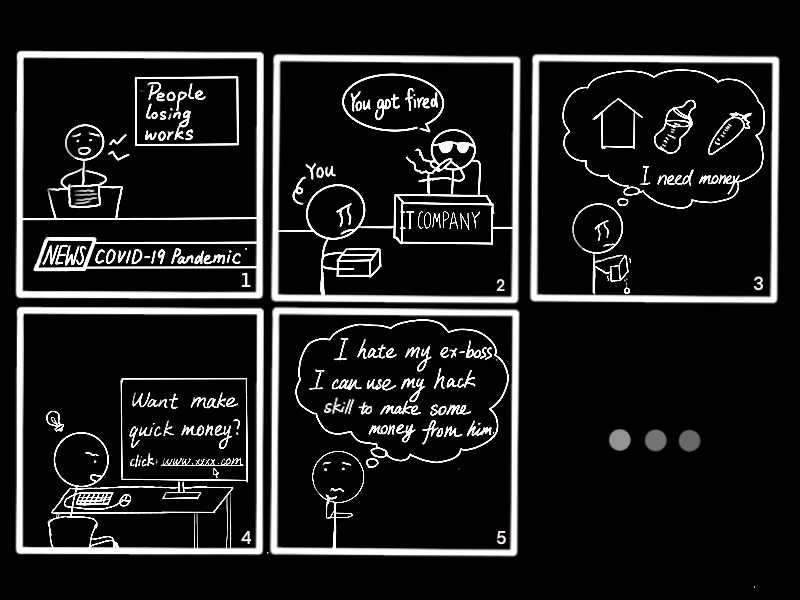 People
losing
works
NEWS COVID-19 Pandemic
1
You got fired
You
IT COMPANY
2
I need money
3
Want make
quick money?
click: www.xxxx.com
4
I hate my ex-boss
I can use my hack
skill to make some
money from him.
5